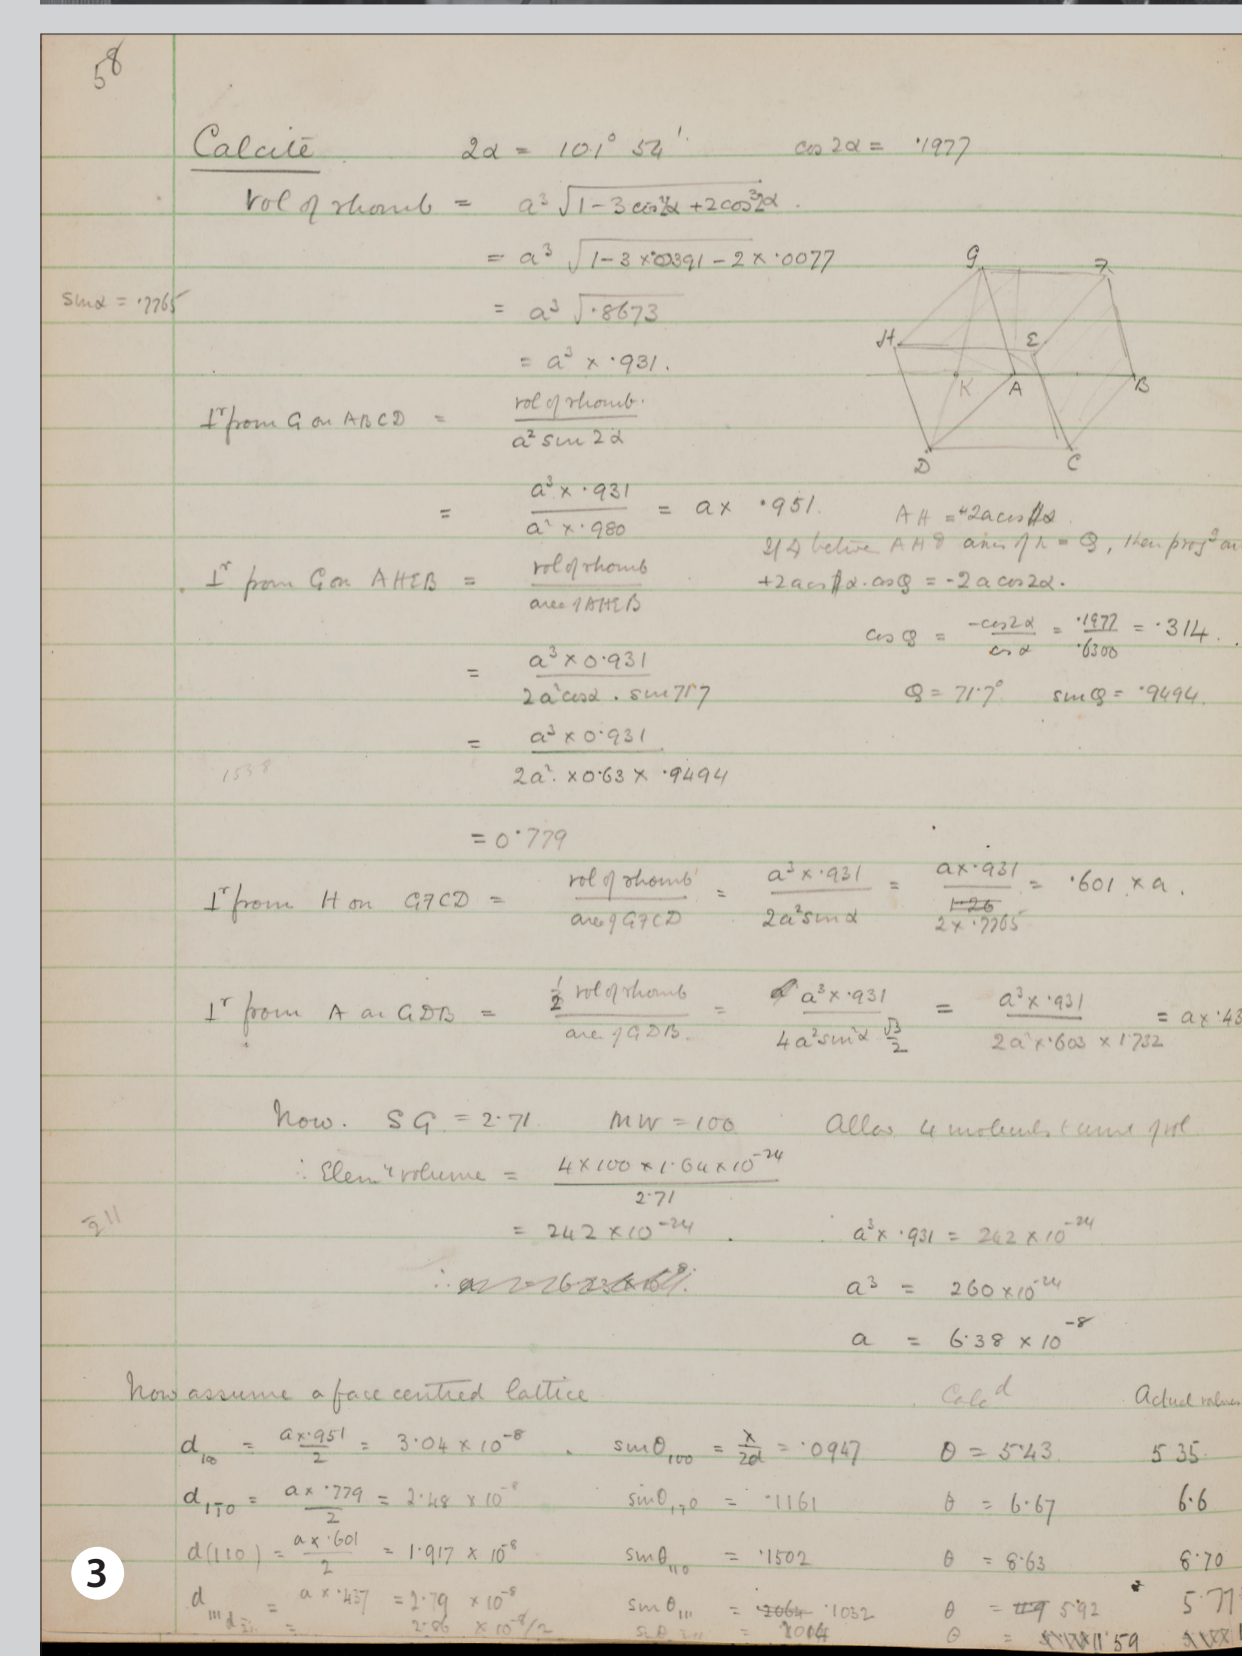 58
Calcite 2α = 101° 54' cos 2α = ·1977
Vol of rhomb = a³ √1 - 3 cos²2α + 2cos³2α .
= a³ √1 - 3 × ·0391 - 2 × ·0077
sin α = ·7765
= a³ √·8673
= a³ × ·931.
G F
H E
K A B
D C
⊥r from G on ABCD = vol of rhomb. / a² sin 2α
= a³ × ·931 / a² × ·980 = a × ·951.
AH = +2a cos α
If ∠ between AH & axis of h = Q, then proj
+2a cos α . cos Q = -2 a cos 2α.
⊥r from G on AHEB = vol of rhomb / area of AHEB
cos Q = -cos 2α / cos α = ·1977 / ·6300 = ·314.
= a³ × 0·931 / 2a² cos α . sin 71·7
Q = 71·7° sin Q = ·9494.
= a³ × 0·931 / 2a². × 0·63 × ·9494
1538
= 0·779
⊥r from H on GFCD = vol of rhomb / area of GFCD = a³ × ·931 / 2a² sin α = a × ·931 / 1·26 2 × ·7765 = ·601 × a .
⊥r from A on GDB = ½ vol of rhomb / area of GDB. = a³ × ·931 / 4a² sin²α √3/2 = a³ × ·931 / 2a² × ·603 × 1·732 = a × ·43
Now. SG = 2·71 MW = 100 Allow 4 molecules
∴ Elemy volume = 4 × 100 × 1·64 × 10⁻²⁴ / 2·71
211
= 242 × 10⁻²⁴ . a³ × ·931 = 242 × 10⁻²⁴
a³ = 260 × 10⁻²⁴
a = 6·38 × 10⁻⁸
Now assume a face centred lattice Calcd Actual values
d₁₀₀ = a × ·951 / 2 = 3·04 × 10⁻⁸ . sin θ₁₀₀ = λ / 2d = ·0947 θ = 5·43 5 35·
d₁₁̄₀ = a × ·779 / 2 = 2·48 × 10⁻⁸ sin θ₁₁̄₀ = ·1161 θ = 6·67 6·6
d(110) = a × ·601 / 2 = 1·917 × 10⁻⁸ sin θ₁₁₀ = ·1502 θ = 8·63 8·70
d₁₁₁ = a × ·437 = 2·79 × 10⁻⁸ sin θ₁₁₁ = ·2064 ·1032 θ = 11·9 5·92 5·77
= 2·86 × 10⁻⁸/2 = θ = 11·59
3